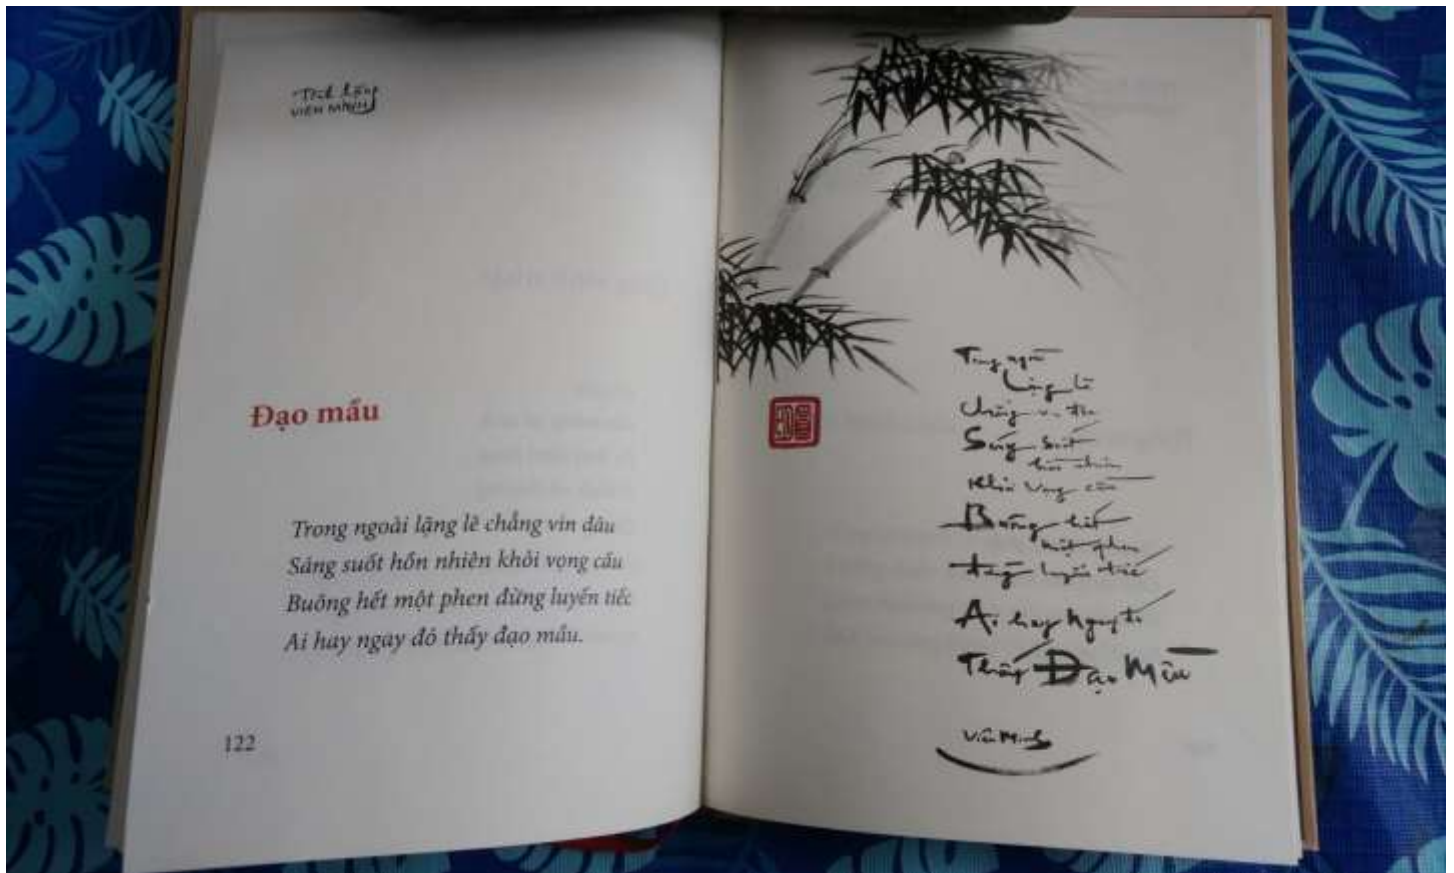 Tĩnh Lặng
VIÊN MINH
Đạo mầu
Trong ngoài lặng lẽ chẳng vin đâu
Sáng suốt hồn nhiên khỏi vọng cầu
Buông hết một phen đừng luyến tiếc
Ai hay ngay đó thấy đạo mầu.
122
Trong ngoài
Lặng lẽ
Chẳng vin đâu
Sáng suốt
hồn nhiên
Khỏi vọng cầu
Buông hết
một phen
đừng luyến tiếc
Ai hay Ngay đó
Thấy Đạo Mầu
Viên Minh